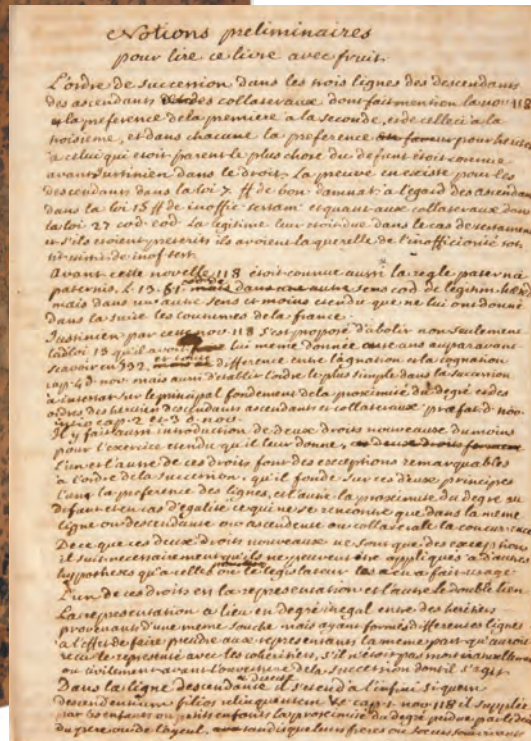 Notions preliminaires
pour lire ce livre avec fruit
L'ordre de succession dans les trois lignes des descendants
des ascendants des collateraux dont fait mention la nov 118
la preference de la premiere a la seconde, et de celle ci a la
troisieme, et dans chacune la preference pour heriter
a celui qui etoit parent le plus du defunt etoit connue
avant justinien dans le droit. la preuve en existe pour les
descendants dans la loi 7. ff de bon damnat a l'egard des ascendans
dans la loi 15 ff de inoffic testam et quant aux collateraux dans
la loi 27 cod. La legitime leur etoit due dans le cas de testament
et s'ils etoient preterits ils avoient la querelle de l'inofficiosité
tit de inof test
Avant cette novelle 118 etoit connue aussi la regle paterna
paternis, L 13 dans sens cod de legitim hered
mais dans un autre sens et moins etendu que ne lui ont donné
dans la suite les coutumes de la france
Justinien par cette nov 118 s'est proposé d'abolir non seulement
ladloi 13 qu'il avoit lui meme donnée ans auparavant
scavoir en 532, difference entre l'agnation et la cognation
cap 4 d. nov. mais aussi d'etablir l'ordre le plus simple dans la succession
a intestat sur le principal fondement de la proximité du degré et des
ordres des heritiers descendants ascendants et collateraux præfat d. nov
cap. 2 et 3 d. nov.
Il y fait aussi introduction de deux droits nouveaux du moins
pour l'exercice etendu qu'il leur donne,
L'un et l'autre de ces droits sont des exceptions remarquables
à l'ordre de la succession, qu'il fonde sur ces deux principes
l'un la preference des lignes, et l'autre la proximité du degré au
defunt et en cas d'egalité ce qui ne se rencontre que dans la meme
ligne ou descendante ou ascendente ou collaterale la concurrence
De ce que ces deux droits nouveaux ne sont que des exceptions
il suit necessairement qu'ils ne peuvent etre appliqués a d'autres
hypotheses qu'a celles ou le legislateur en a fait usage
L'un de ces droits est la representation et l'autre le double lien
La representation a lieu en degré inegal entre des heritiers
provenants d'une meme souche mais ayant formés differentes lignes
a l'effet de faire prendre aux representants la meme part qu'auroit
recu le representé avec les coheritiers, s'il n'etoit pas mort naturellement
ou civilement avant l'ouverture de la succession dont il s'agit
Dans la ligne descendante directe il s'etend a l'infini si quem
descendentium filios relinquentem cap. 1 nov 118 il supplée
par les enfants ou petits enfants la proximité du degré perdue par le deces
du pere ou de l'ayeul, tandis que leurs freres ou soeurs survivant